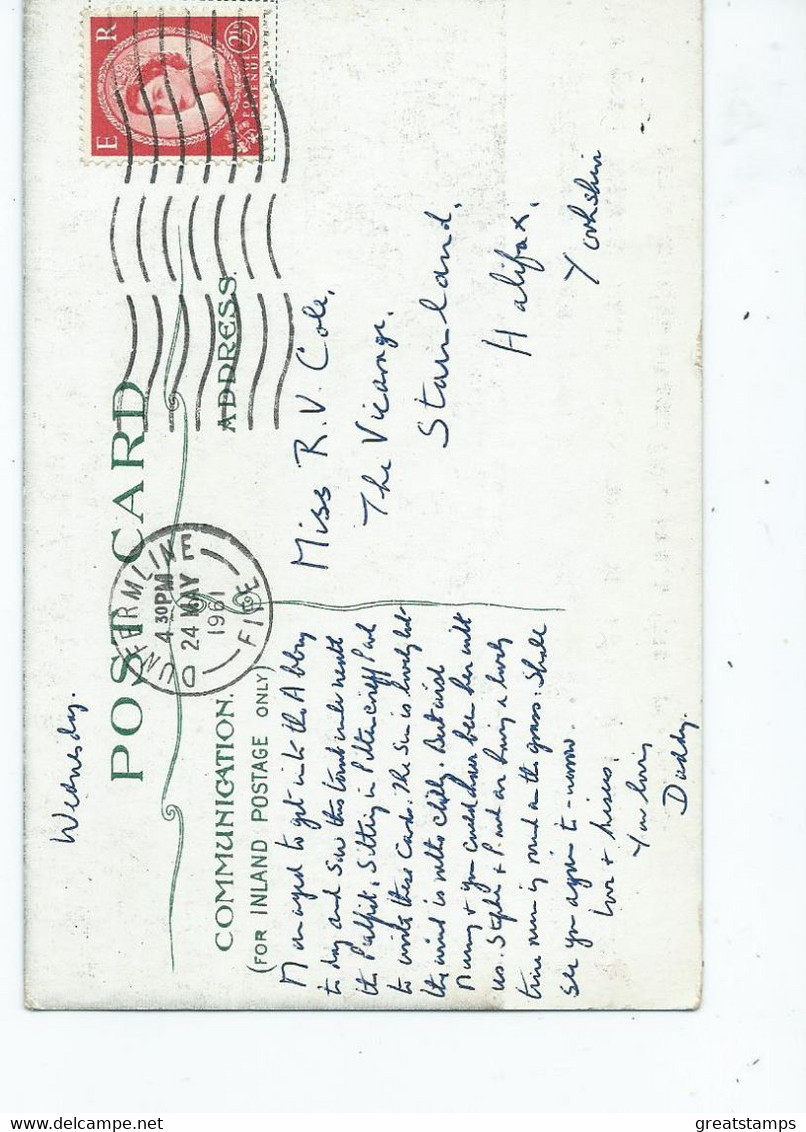 Wednesday.
POST CARD
COMMUNICATION.
(FOR INLAND POSTAGE ONLY)
ADDRESS.
Managed to get into the Abbey
to day and saw this tomb underneath
the Pulpit. Sitting in Pittencrieff Park
to write these cards. The sun is lovely but
the wind is rather chilly. But wish
Mummy & you could have been here with
us. Stephen & Paul are having a lovely
time running round on the grass. Shall
see you again to-morrow.
Love & kisses.
Your loving
Daddy.
Miss R. V. Cole,
The Vicarage,
Stainland,
Halifax,
Yorkshire
DUNFERMLINE
4 30 PM
24 MAY
1961
FIFE
E R
2½D
POSTAGE
REVENUE
delcampe.net
greatstamps